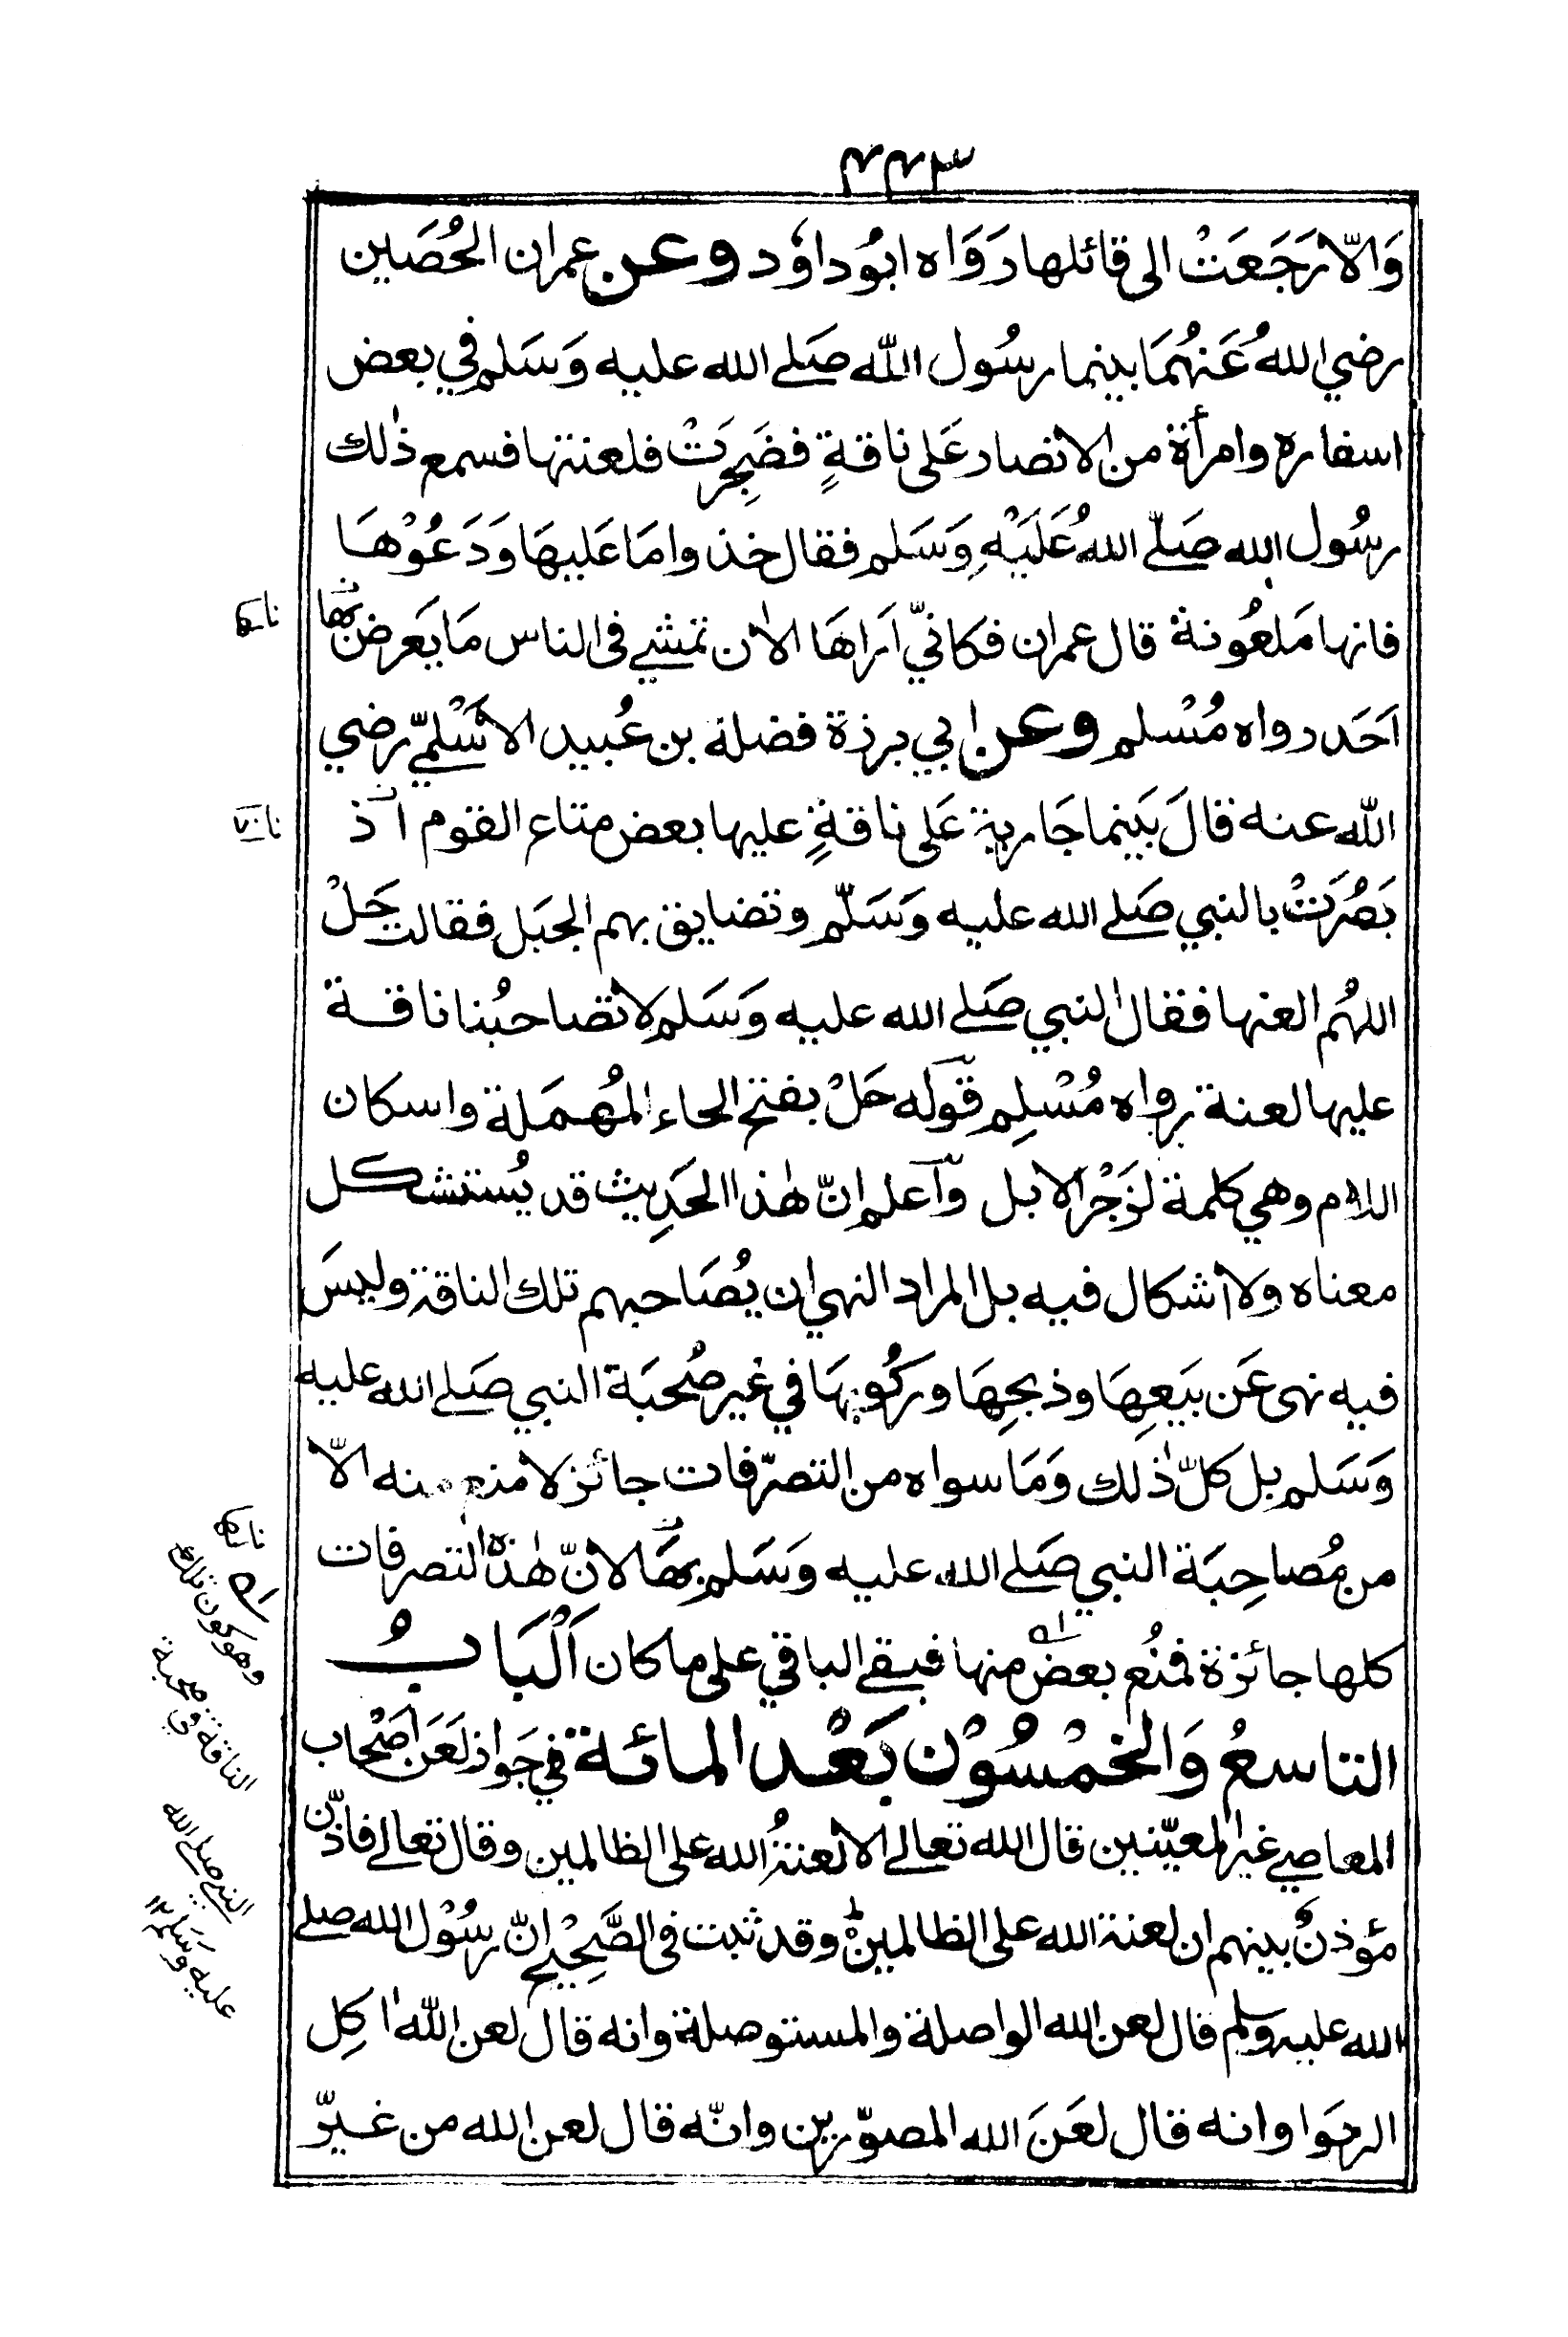 ۴۴۳
وَالّا رَجَعَتْ الى قائلها رَوَاه ابُو داوٗد وعن عمران الحُصَين
رضي اللهُ عَنهُمَا بينما رسُول اللّه صَلے الله عليه وَسَلم في بعض
اسفاره وامرأة من الانصار عَلى ناقةٍ فضَجِرَتْ فلعنتها فسمع ذٰلك
رسُول الله صَلّے اللهُ عَلَيْهِ وَسَلم فقال خذوا مَا عَليهَا وَدَعُوْهَا
فانها مَلعُونة قال عمران فكانيّ اَرَاهَا الاٰن تمشے فى الناس مَا يَعرض لها
اَحَد رواه مُسْلم وعن ابي برزة فضلة بن عُبيد الاسْلَميّ رضي
اللّه عنه قالَ بَينما جَارية عَلى ناقةٍ عليها بعض متاع القوم اذ
بَصُرَتْ بالنبي صَلے الله عليه وَسَلّم وتضايق بهم الجبَل فقالت حَلْ
اللهُم العنها فقال النبي صَلے الله عليه وَسَلم لا تصاحبُنا ناقة
عليها لعنة رواه مُسْلِم قوله حَلْ بفتح الحاء المُهمَلة واسكان
اللام وهي كلمة لزَجْر الابل واعلم انّ هٰذا الحَدِيث قد يُستشكل
معناه ولا اشكال فيه بل المراد النهي ان يُصَاحبهم تلك الناقة وليسَ
فيه نهى عَن بَيعِهَا وذبحِهَا وركُوبهَا في غير صُحبَة النبي صَلے الله عليه
وَسَلم بل كلّ ذٰلك وَمَا سواه من التصرّفات جائز لا منع منه الاّ
من مُصاحِبَة النبي صَلے الله عليه وَسَلم بهَا لانّ هٰذه التصرفات
كلها جائزة فمنُع بعض منها فبقے الباقي على ما كان اَلْبَابُ
التاسعُ وَالخمْسُوْن بَعْد المائة في جَواز لَعَن اَصْحاب
المعاصے غير المعيّنين قال الله تعالے الا لعنةُ الله على الظالمين وقال تعالے فاذّن
مؤذنٌ بينهم ان لعنة الله على الظالمين وقد ثبت فى الصَّحِيْح انّ رسُوْل الله صلے
الله عليه وسلم قال لعن الله الواصلة والمستوصلة وانه قال لعن اللّه اٰكِل
الربوَا وانه قال لعَنَ الله المصوّرين وانّه قال لعن الله من غيرّ
وهو كون تلك
الناقة في صحبة
النبي صلے الله
عليه وسَلم ١٢